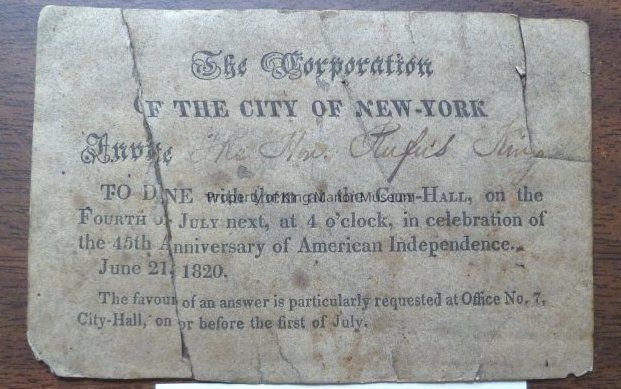 The Corporation
OF THE CITY OF NEW-YORK
Invite The Hon. Rufus King
TO DINE with them at the CITY-HALL, on the
FOURTH OF JULY next, at 4 o'clock, in celebration of
the 45th Anniversary of American Independence.
June 21, 1820.
The favour of an answer is particularly requested at Office No. 7,
City-Hall, on or before the first of July.
Property of King Manor Museum